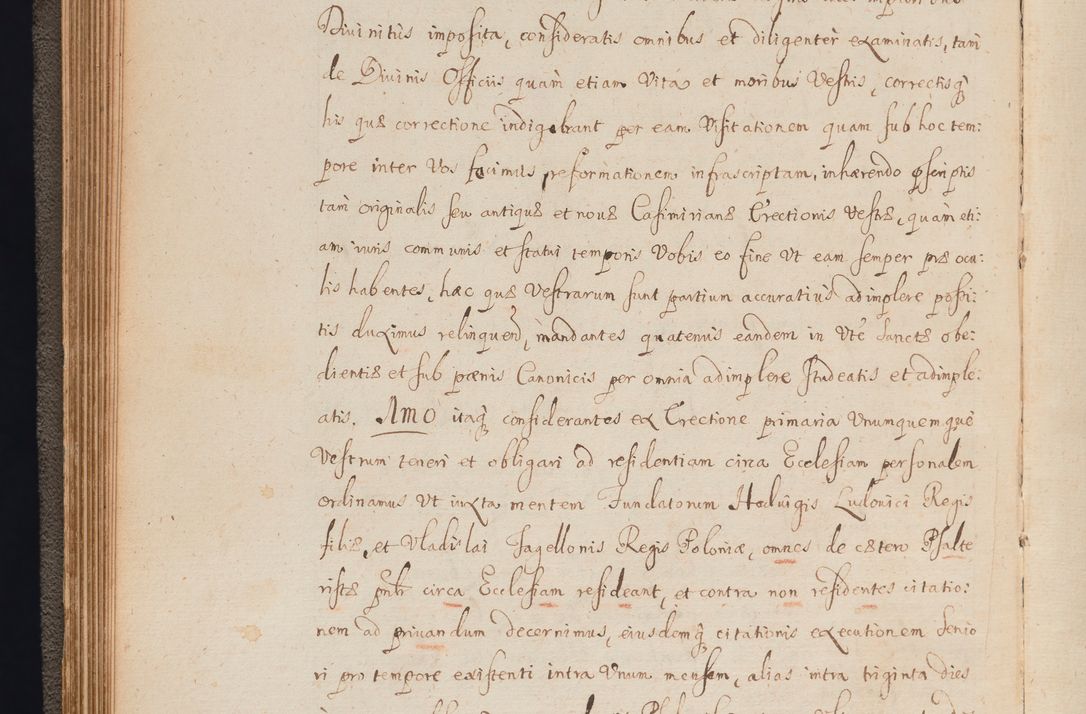 Divinitus imposita, consideratis omnibus et diligenter examinatis, tam
de Divinis Officiis quàm etiam Vita et moribus Vestris, correctisq́
his quæ correctione indigebant per eam Visitationem quam sub hoc tem:
pore inter Vos fecimus, reformationem infrascriptam, inhærendo pscriptis
tam originalis seu antiquæ et novæ Casimirianæ Erectionis Vestræ, quàm eti:
am iuris communis et statui temporis Vobis eo fine Vt eam semper præ ocu:
lis habentes, hæc quæ Vestrarum sunt partium accuratiùs adimplere possi:
tis duximus relinquend, mandantes quatenus eandem in Vte Sanctæ obe:
dientiæ et sub pœnis Canonicis per omnia adimplere Studeatis et adimple:
atis. Amo itaq́ considerantes ex Erectione primaria Vnumquemque
Vestrum teneri et obligari ad residentiam circa Ecclesiam personalem
ordinamus Vt iuxta mentem Fundatorum Hedvigis Ludovici Regis
filiæ, et Vladislai Jagellonis Regis Poloniæ, omnes de cætero Psalte
ristæ pntr circa Ecclesiam resideant, et contra non residentes citatio:
nem ad privandum decernimus, eiusdemq́ citationis executionem Senio
ri pro tempore existenti intra Vnum mensem, alias intra triginta dies